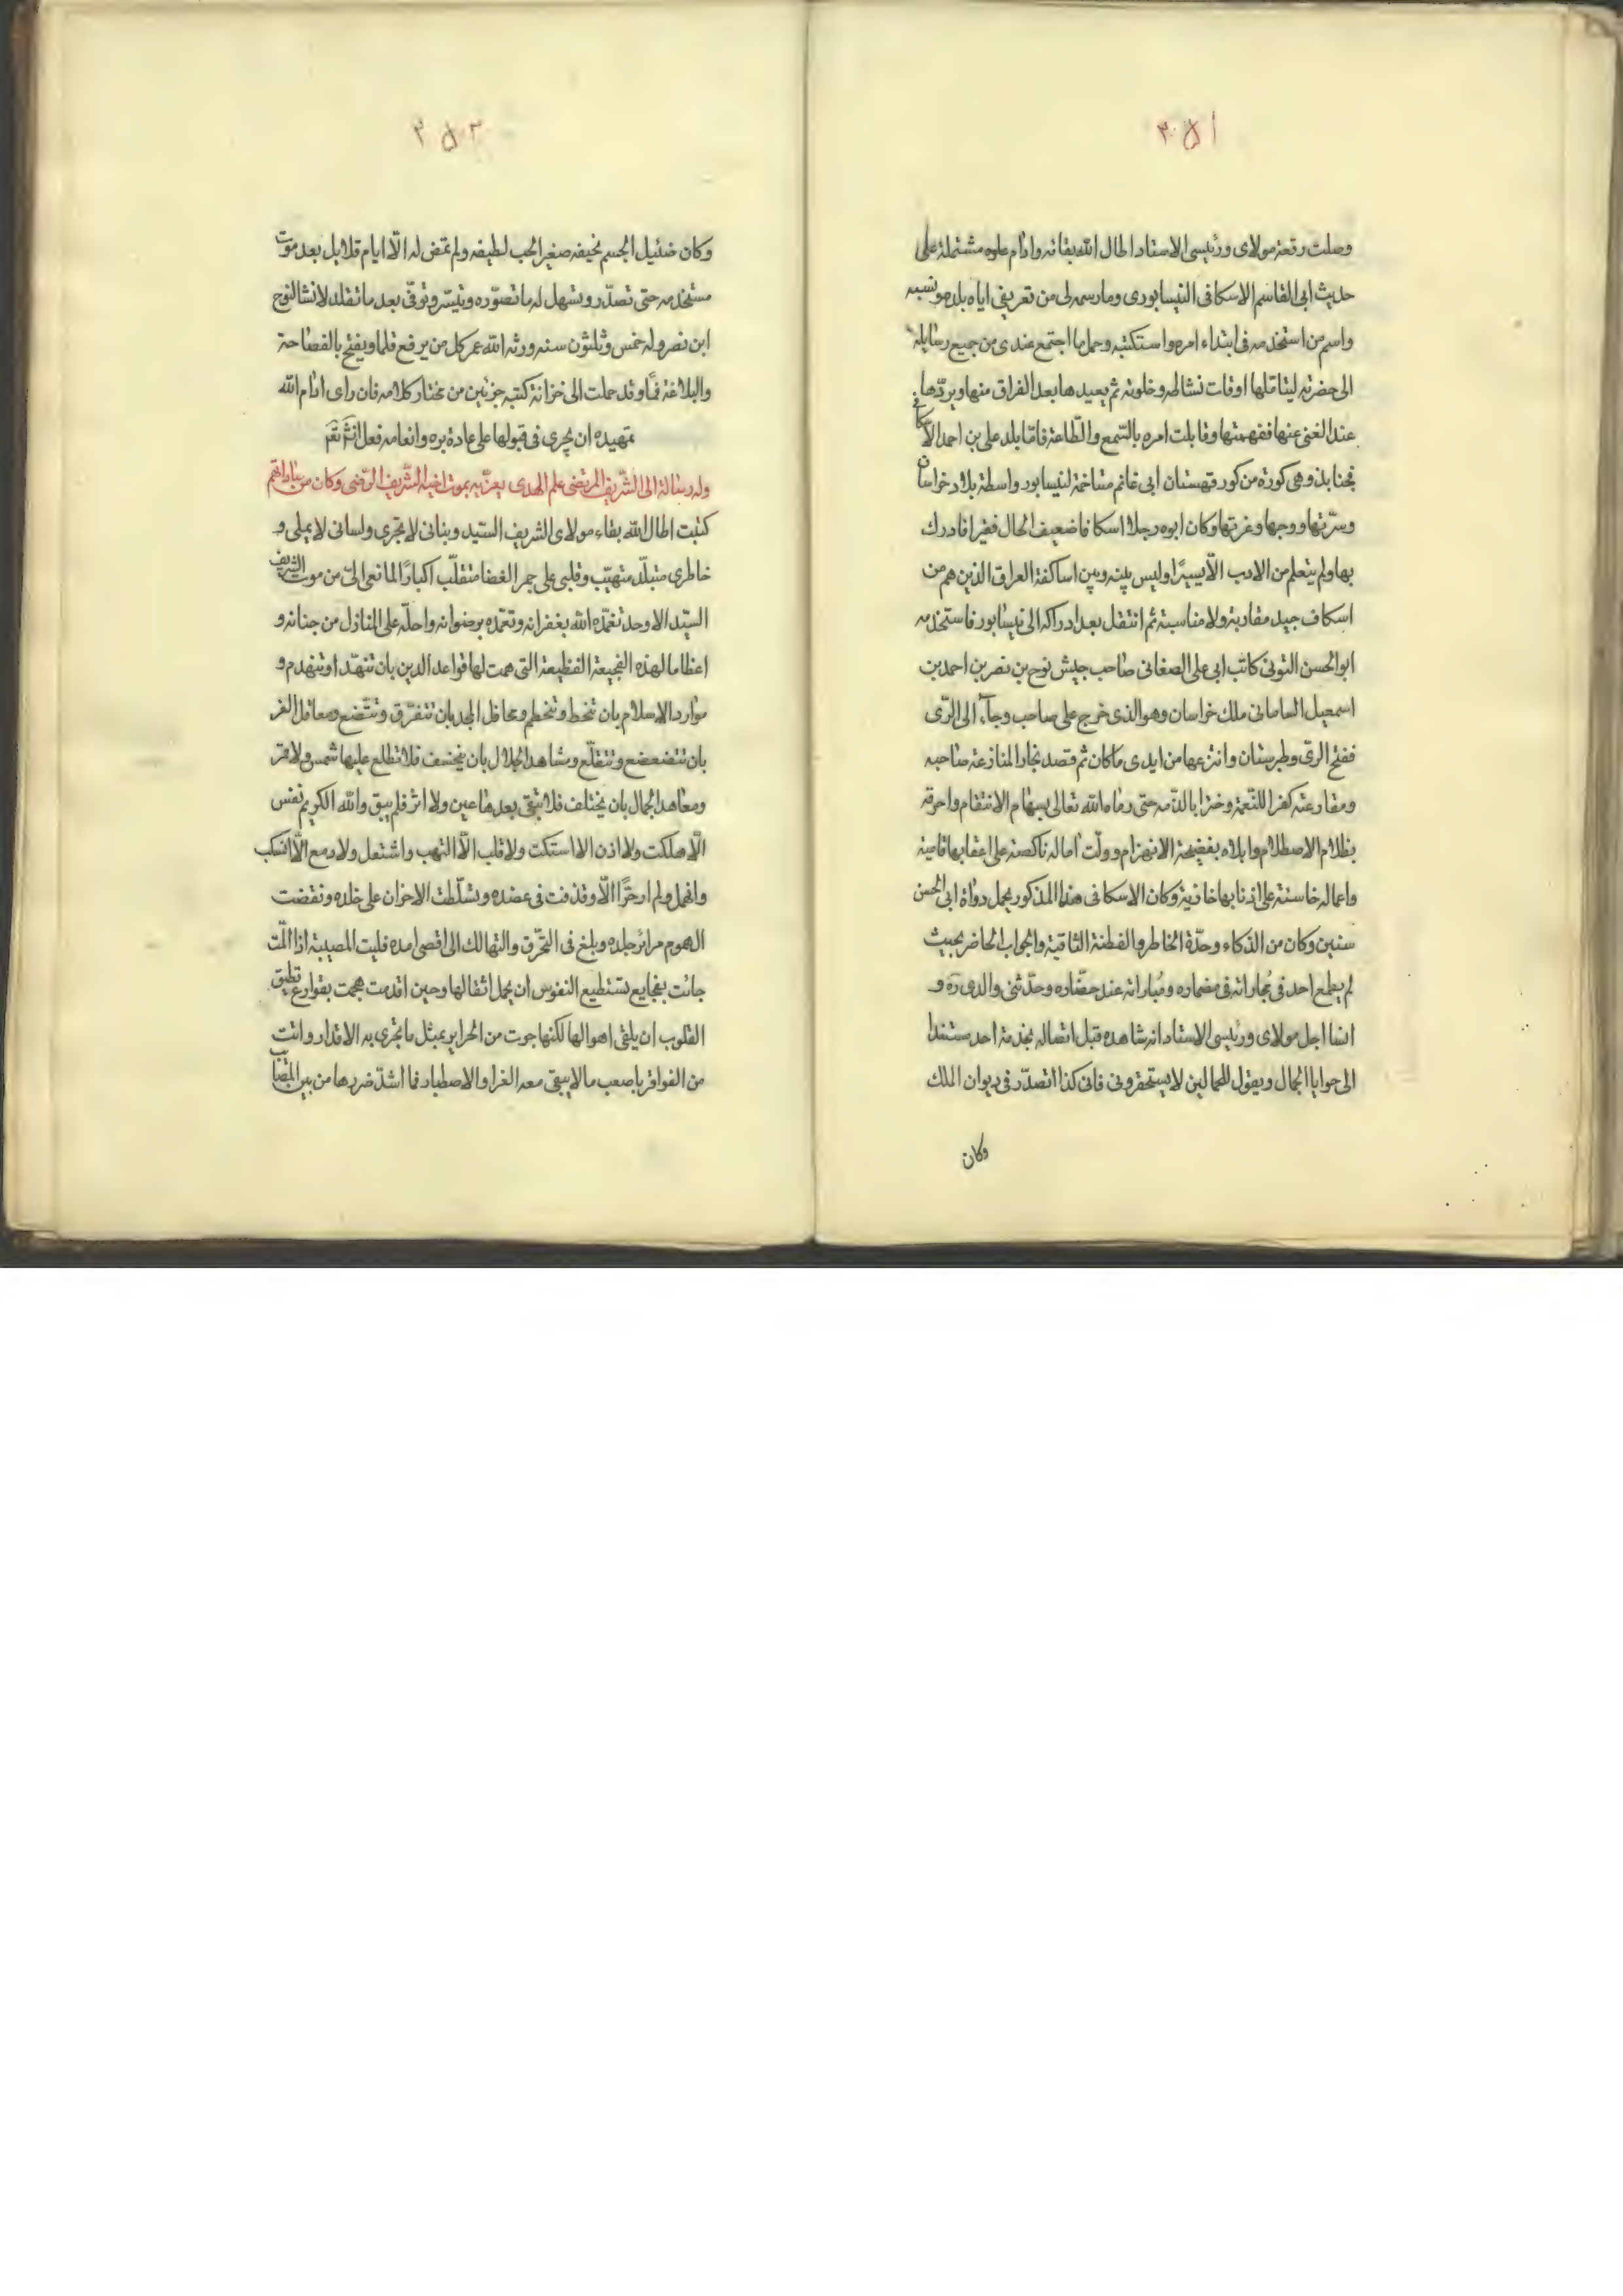 ٢٥١
وصلت رقعة مولاى ورئيسى الاستاد اطال الله بقائه وادام علوه مشتملة على
حديث ابى القاسم الاسكافى النيسابورى ومارسمه لى من تعريفى اياه بلده ونسبه
واسم من استخدمه فى ابتداء امره واستكتبه وحمل ما اجتمع عندى من جميع رسايله
الى حضرته ليتاملها اوقات نشاطه وخلوته ثم يعيدها بعد الفراق منها ويردّها
عند الغنى عنها ففهمتها وقابلت امره بالسّمع والطّاعة فامّا بلد على بن احمد الاسكافى
فجنابذ وهى كورة من كور قهستان ابى غانم متاخمة لنيسابور واسطة بلاد خراسان
وسرّتها ووجها وغرتها وكان ابوه رجلا اسكافا ضعيف الحال فقيرا فادرك
بها ولم يتعلم من الادب الّا يسيرًا وليس بينه وبين اساكفة العراق الذين هم من
اسكاف جيد مقاربة ولا مناسبة ثم انتقل بعد ادراكه الى نيسابور فاستخدمه
ابو الحسن التونى كاتب ابى على الصغانى صاحب جيش نوح بن نصر بن احمد بن
اسمعيل السامانى ملك خراسان وهو الذى خرج على صاحب وجآء الى الرّى
ففتح الرّى وطبرستان وانتزعها من ايدى ماكان ثم قصد بخارا لمنازعة صاحبه
ومقارعته كفرا للنّعمة وخترا بالذّمه حتى رماه الله تعالى بسهام الانتقام واحرقه
بظلام الاصطلام وابلاه بفضيحة الانهزام وولّت اماله ناكصة على اعقابها قامية
واعماله خاسئة على اذنابها خافية وكان الاسكافى هذا المذكور يحمل دواة ابى الحسن
سنين وكان من الذكاء وحدّة الخاطر والفطنة الثاقبة والجواب الحاضر بحيث
لم يطمع احد فى مجاراته فى مضماره ومباراته عند حضّاره وحدّثنى والدى ره و
انسا اجل مولاى ورئيسى الاستاد انه شاهده قبل اتصاله بخدمة احد مستندا
الى جوايا الجمال ويقول للحمالين لا يستحقرونى فانى كذا اتصدّر فى ديوان الملك
وكان
٢٥٢
وكان ضئيل الجسم نحيفه صغير الجب لطيفه ولم تمض له الّا ايام قلايل بعد موت
مستخدمه حتى تصدّر وتسهل له ما تصوّره وتيسّر وتوفّى بعد ما تقلد لانشا لنوح
ابن نصر وله خمس وثلثون سنه ورثه الله عمر كل من يرفع قلما ويفتح بالفصاحة
والبلاغة فمًا وقد حملت الى خزانة كتبه جزئين من مختار كلامه فان راى ادام الله
تمهيده ان يجرى فى قبولها على عادة بره وانعامه فعل انش تعر
وله رسالة الى الشّريف المرتضى علم الهدى يعزّيه بموت اخيه الشّريف الرّضى وكان من
كتبت اطال الله بقاء مولاى الشريف السيّد وبنانى لا يجرى ولسانى لا يملى و
خاطرى متبلّد متهيّب وقلبى على جمر الغضا متقلّب اكبارًا لما نعى الىّ من موت الشريف
السيّد الاوحد تغمّده الله بغفرانه وتعمّده برضوانه واحلّه على المنازل من جنانه و
اعظاما لهذه الفجيعة الفظيعة التى همت لها قواعد الدين بان تنهدّ او تنهدم و
موارد الاسلام بان تنحط وتنحطم ومحافل المجد بان تتفرّق وتتّضع ومعاقل العز
بان تتضعضع وتتقلّع ومشاهد الجلال بان ينخسف فلا تطلع عليها شمس ولا قمر
ومعاهد الجمال بان يختلف فلا تبقى بعدها عين ولا اثر فلم يبق والله الكريم نفس
الّا هلكت ولا اذن الا استكت ولا قلب الّا التهب واشتعل ولا دمع الّا انسكب
وانهمل ولم ار حرًّا الّا وقد فت فى عضده وتسلّطت الاحزان على خلده ونقضت
الهموم مرائر جلده وبلغ فى التحرّق والتهالك الى اقصى امده فليت المصيبة اذا المّت
جائت بفجايع تستطيع النفوس ان يحمل اثقالها وحين اقدمت هجمت بقوارع تطيق
القلوب ان يلقى اهوالها لكنها جوت من الحراير بمثل ما تجرى به الاقدار وانت
من الفواقر باصعب ما لا يبقى معه الغرا والاصطبار فما اشدّ ضررها من بين المصائب